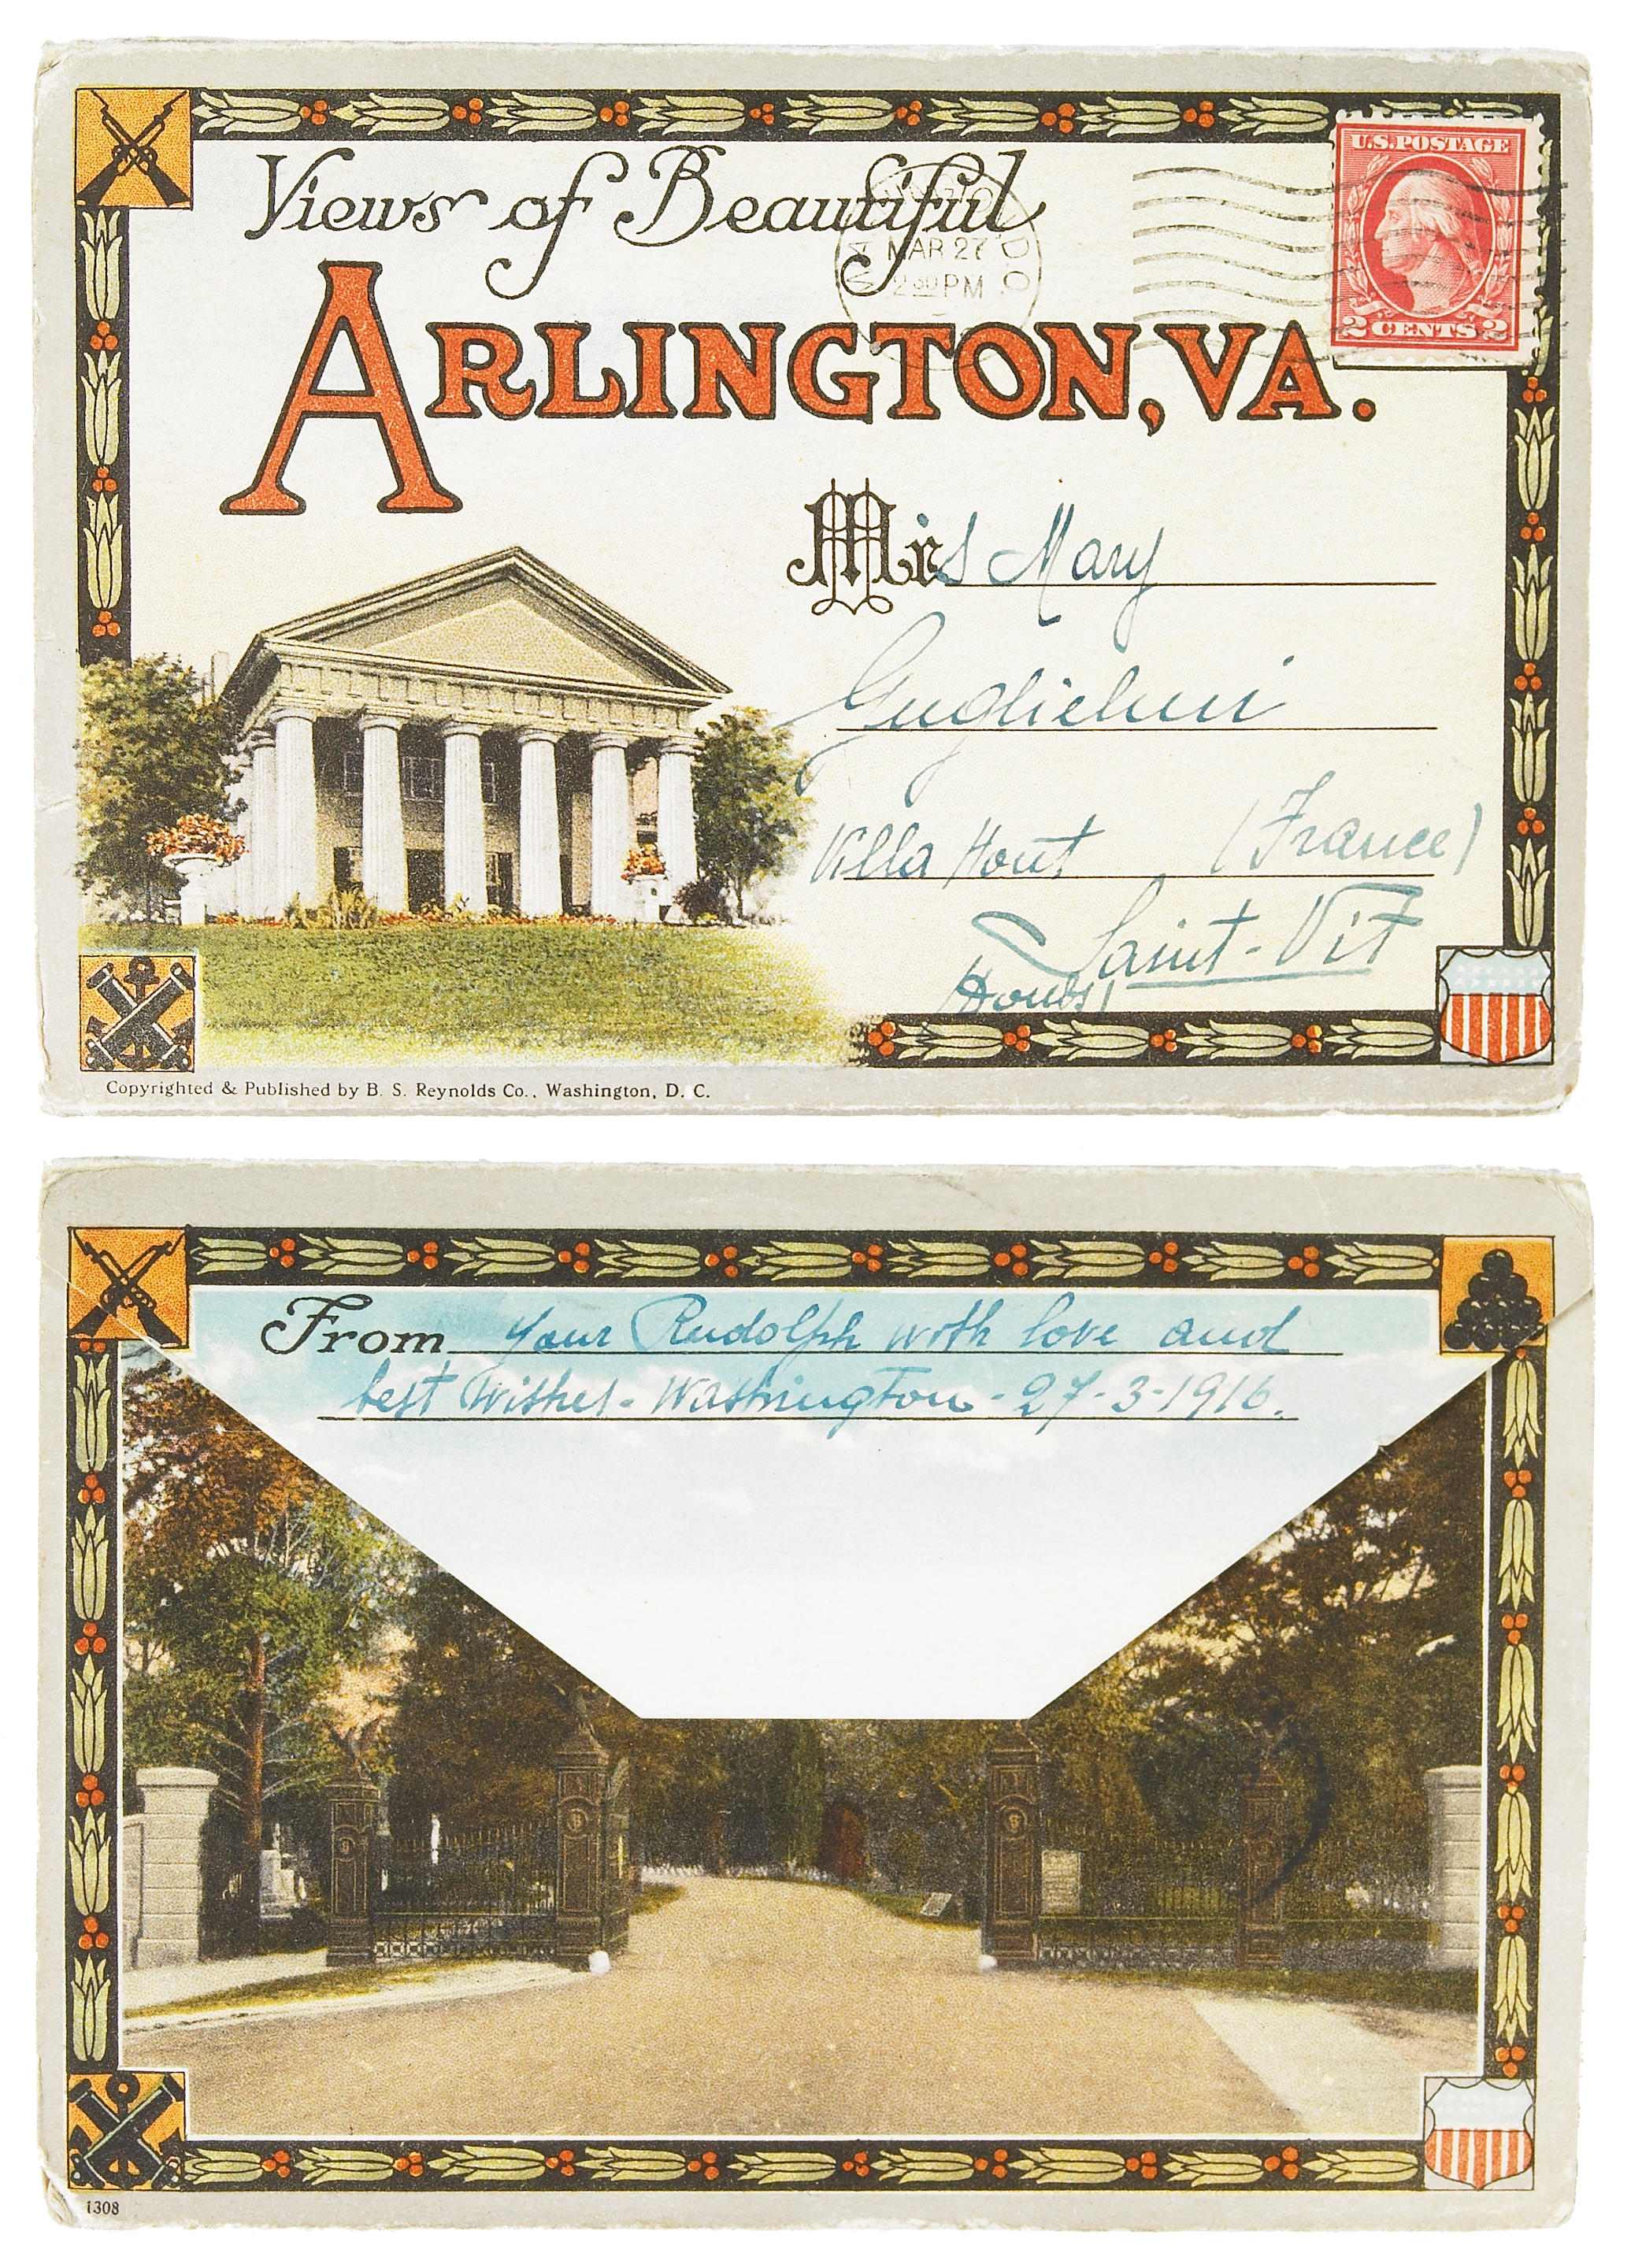 Views of Beautiful
U.S. POSTAGE
MAR 27
2 30 PM
2 CENTS 2
ARLINGTON, VA.
Miss Mary
Guglielmi
Villa Hout (France)
Saint-Vit
Doubs
Copyrighted & Published by B. S. Reynolds Co., Washington, D. C.
From your Rudolph with love and
best Wishes - Washington - 27-3-1916.
1308